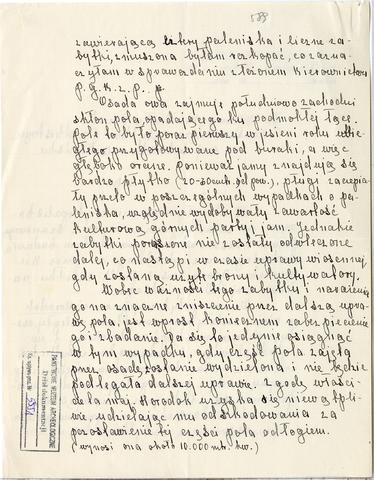 588
zawierającą cztery paleniska i liczne za-
bytki, zmuszona byłam rozkopać, co zazna-
czyłam w sprawozdaniu złożonem Kierownictwu
P.G.K.Z.P.P.
Osada owa zajmuje południowo zachodni
skłon pola, opadającego ku podmokłej łące.
Pole to było poraz pierwszy w jesieni roku ubie-
głego przygotowywane pod buraki, a więc
głęboko orane. Ponieważ jamy znajdują się
bardzo płytko (20-30 cmtr. od pow.), pługi zaczepia-
ły przeto w poszczególnych wypadkach o pa-
leniska, względnie wydobywały zawartość
kulturową górnych partyj jam. Jednakie
zabytki powyższe nie zostały odwleczone
dalej, co nastąpi w czasie uprawy wiosennej,
gdy zostaną użyte brony i kultywatory.
Wobec ważności tego zabytku i narażenia
go na znaczne zniszczenie przez dalszą upra-
wę pola, jest wprost koniecznem zabezpieczenie
go i zbadanie. Da się to jedynie osiągnąć
w tym wypadku, gdy część pola zajęta
przez osadę zostanie wydzielona i nie będzie
podlegała dalszej uprawie. Zgodę właści-
ciela maj. Horodok uzyska się niewątpli-
wie, udzielając mu odszkodowania za
pozostawienie tej części pola odłogiem.
(wynosi ona około 10.000 mtr. kw.)
PAŃSTWOWE MUZEUM ARCHEOLOGICZNE
Dział dokumentacji
Ks. wpływu Nr.